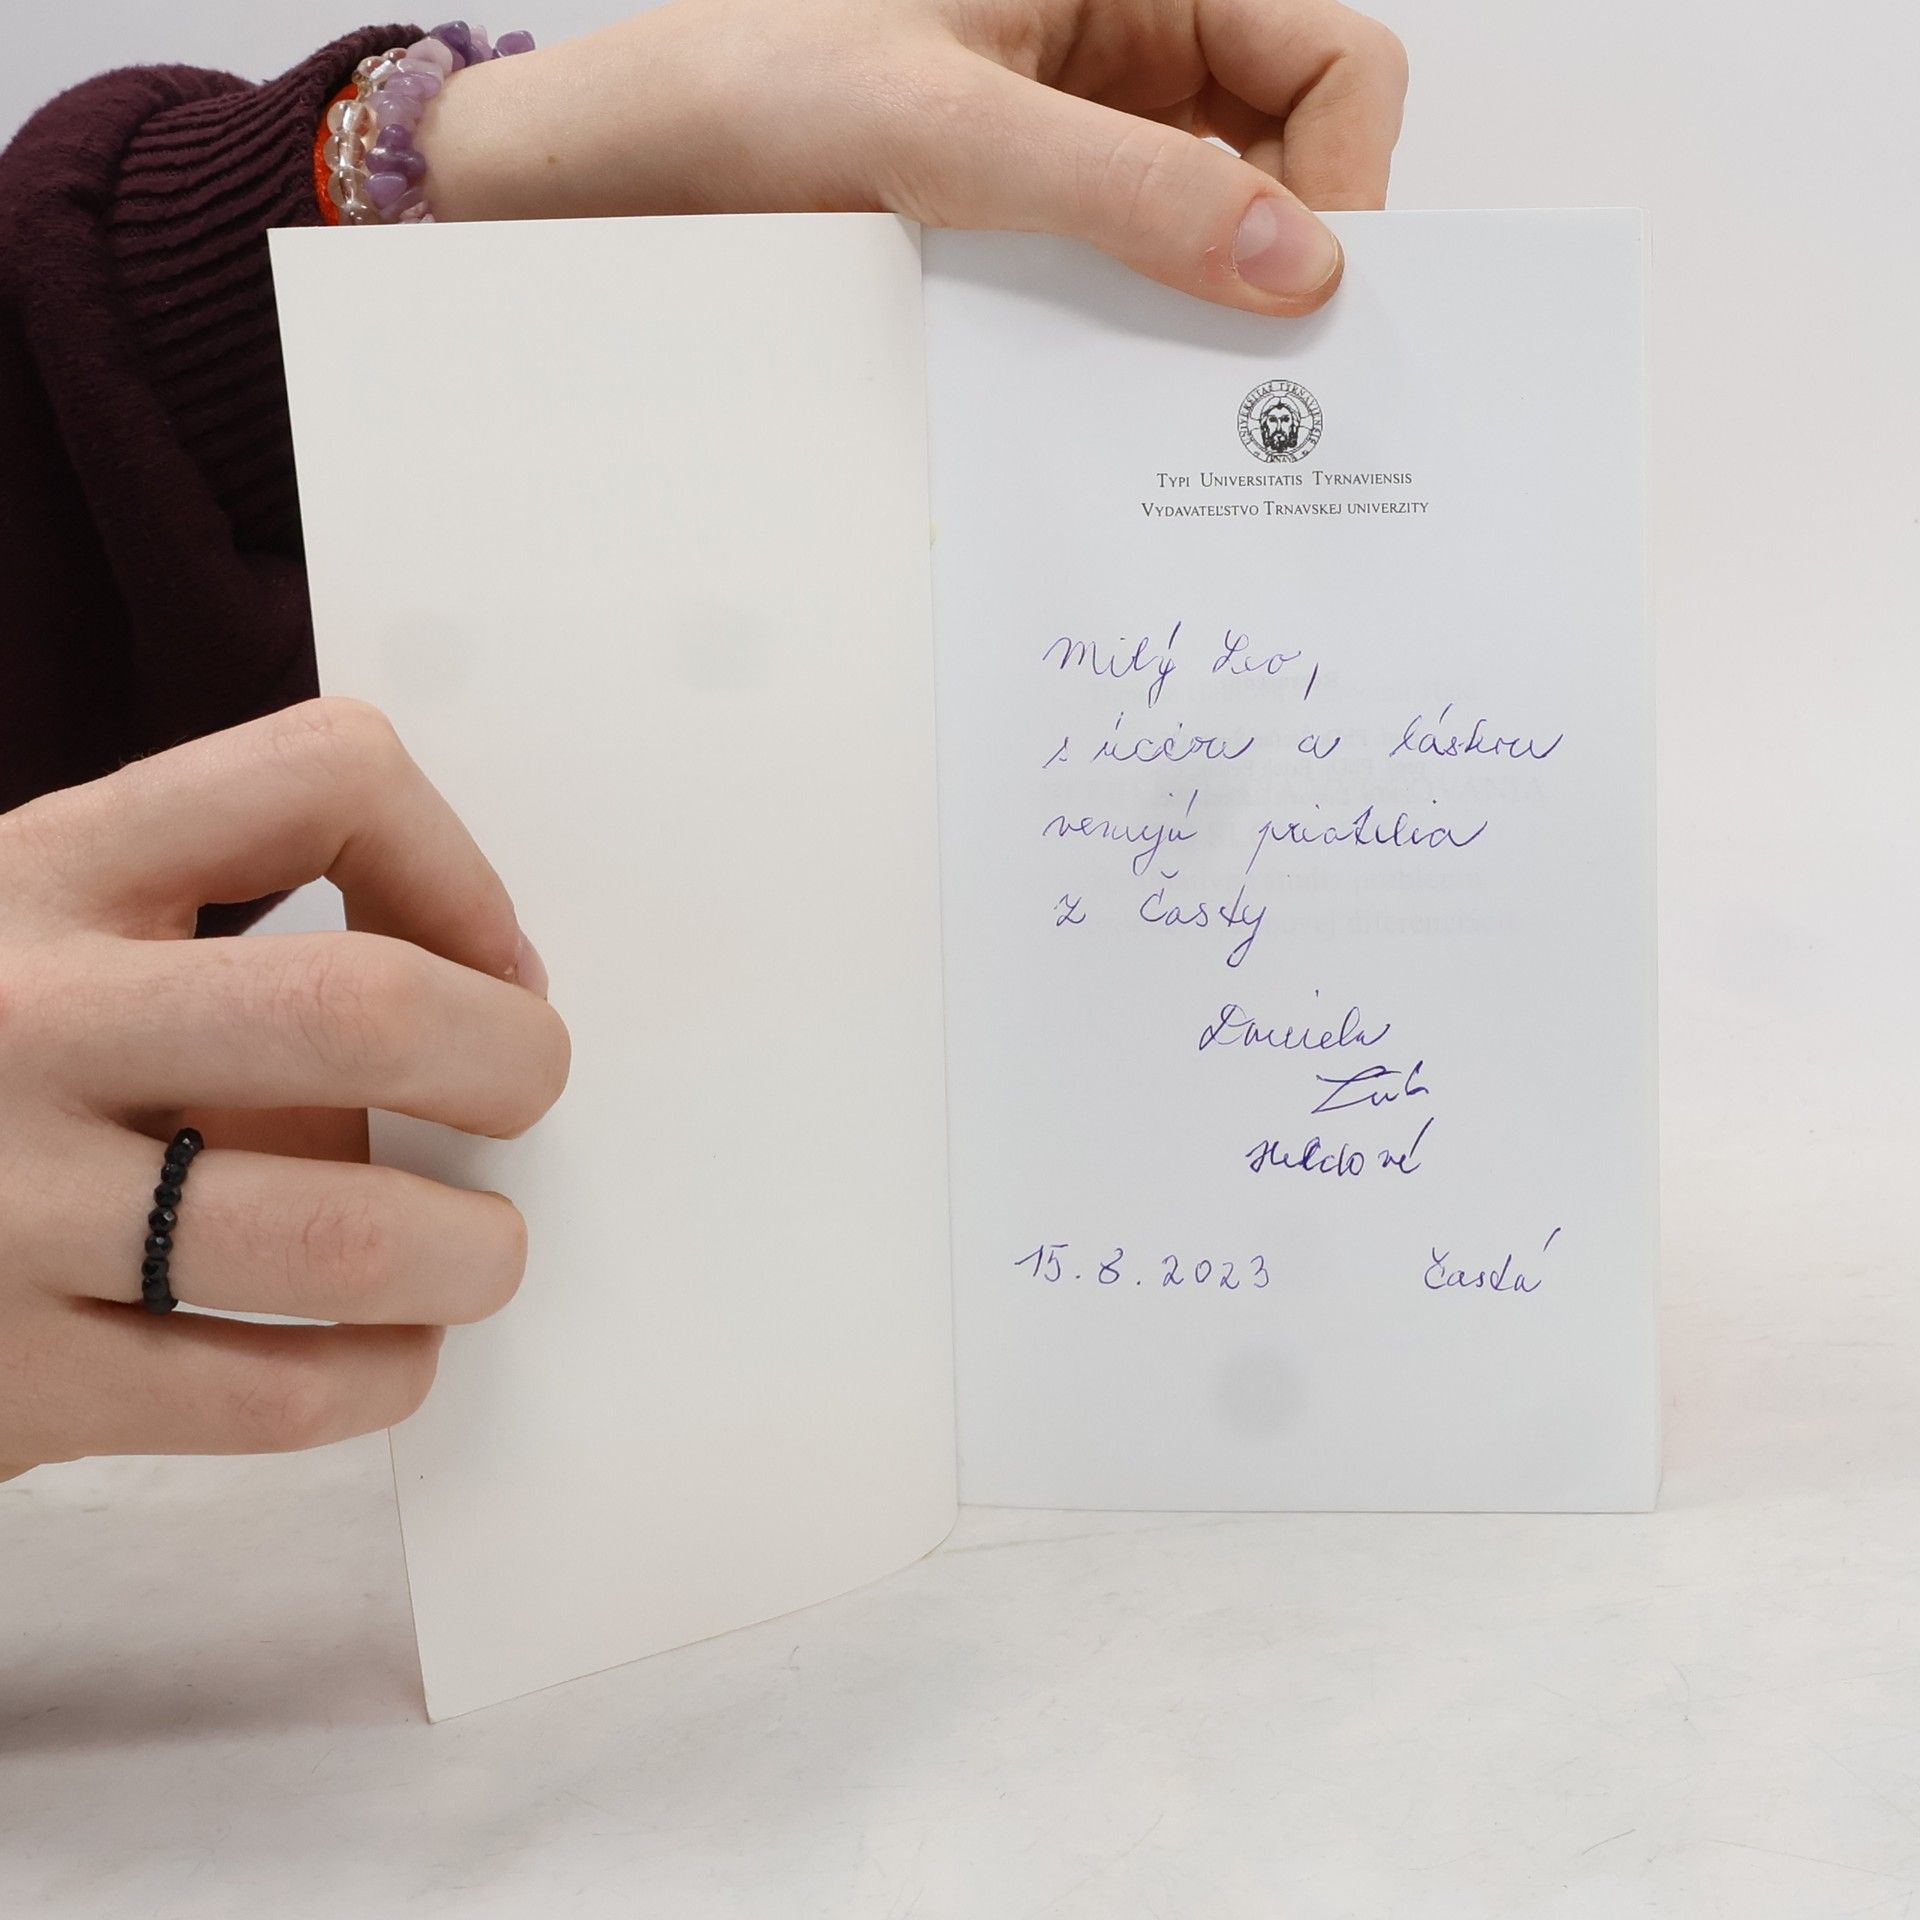 UNIVERSITAS TYRNAVIENSIS
TYPI UNIVERSITATIS TYRNAVIENSIS
VYDAVATEĽSTVO TRNAVSKEJ UNIVERZITY
Milý Leo,
s úctou a láskou
venujú priatelia
z Častý
Daniela
Heldové
15.8.2023 Častá